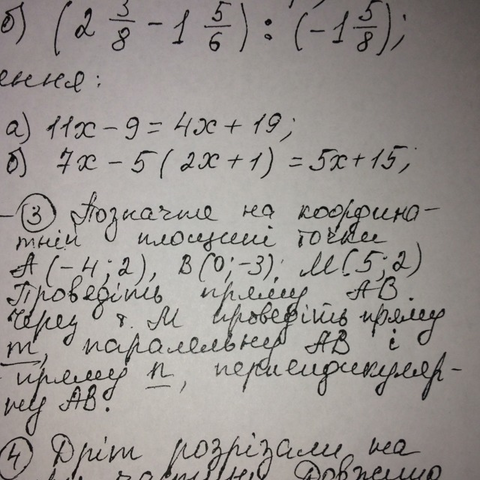 б) (2 3/8 - 1 5/6) : (-1 5/8);
ення:
а) 11x - 9 = 4x + 19;
б) 7x - 5 (2x + 1) = 5x + 15;
- ③ Позначте на коордиna-
тній площині точки
А (-4; 2), В (0; -3); М (5; 2)
Проведіть пряму АВ.
Через т. М проведіть пряму
m, паралельну АВ і
пряму n, перпендикуляр-
ну АВ.
④ Дріт розрізали на
частини. Довжина